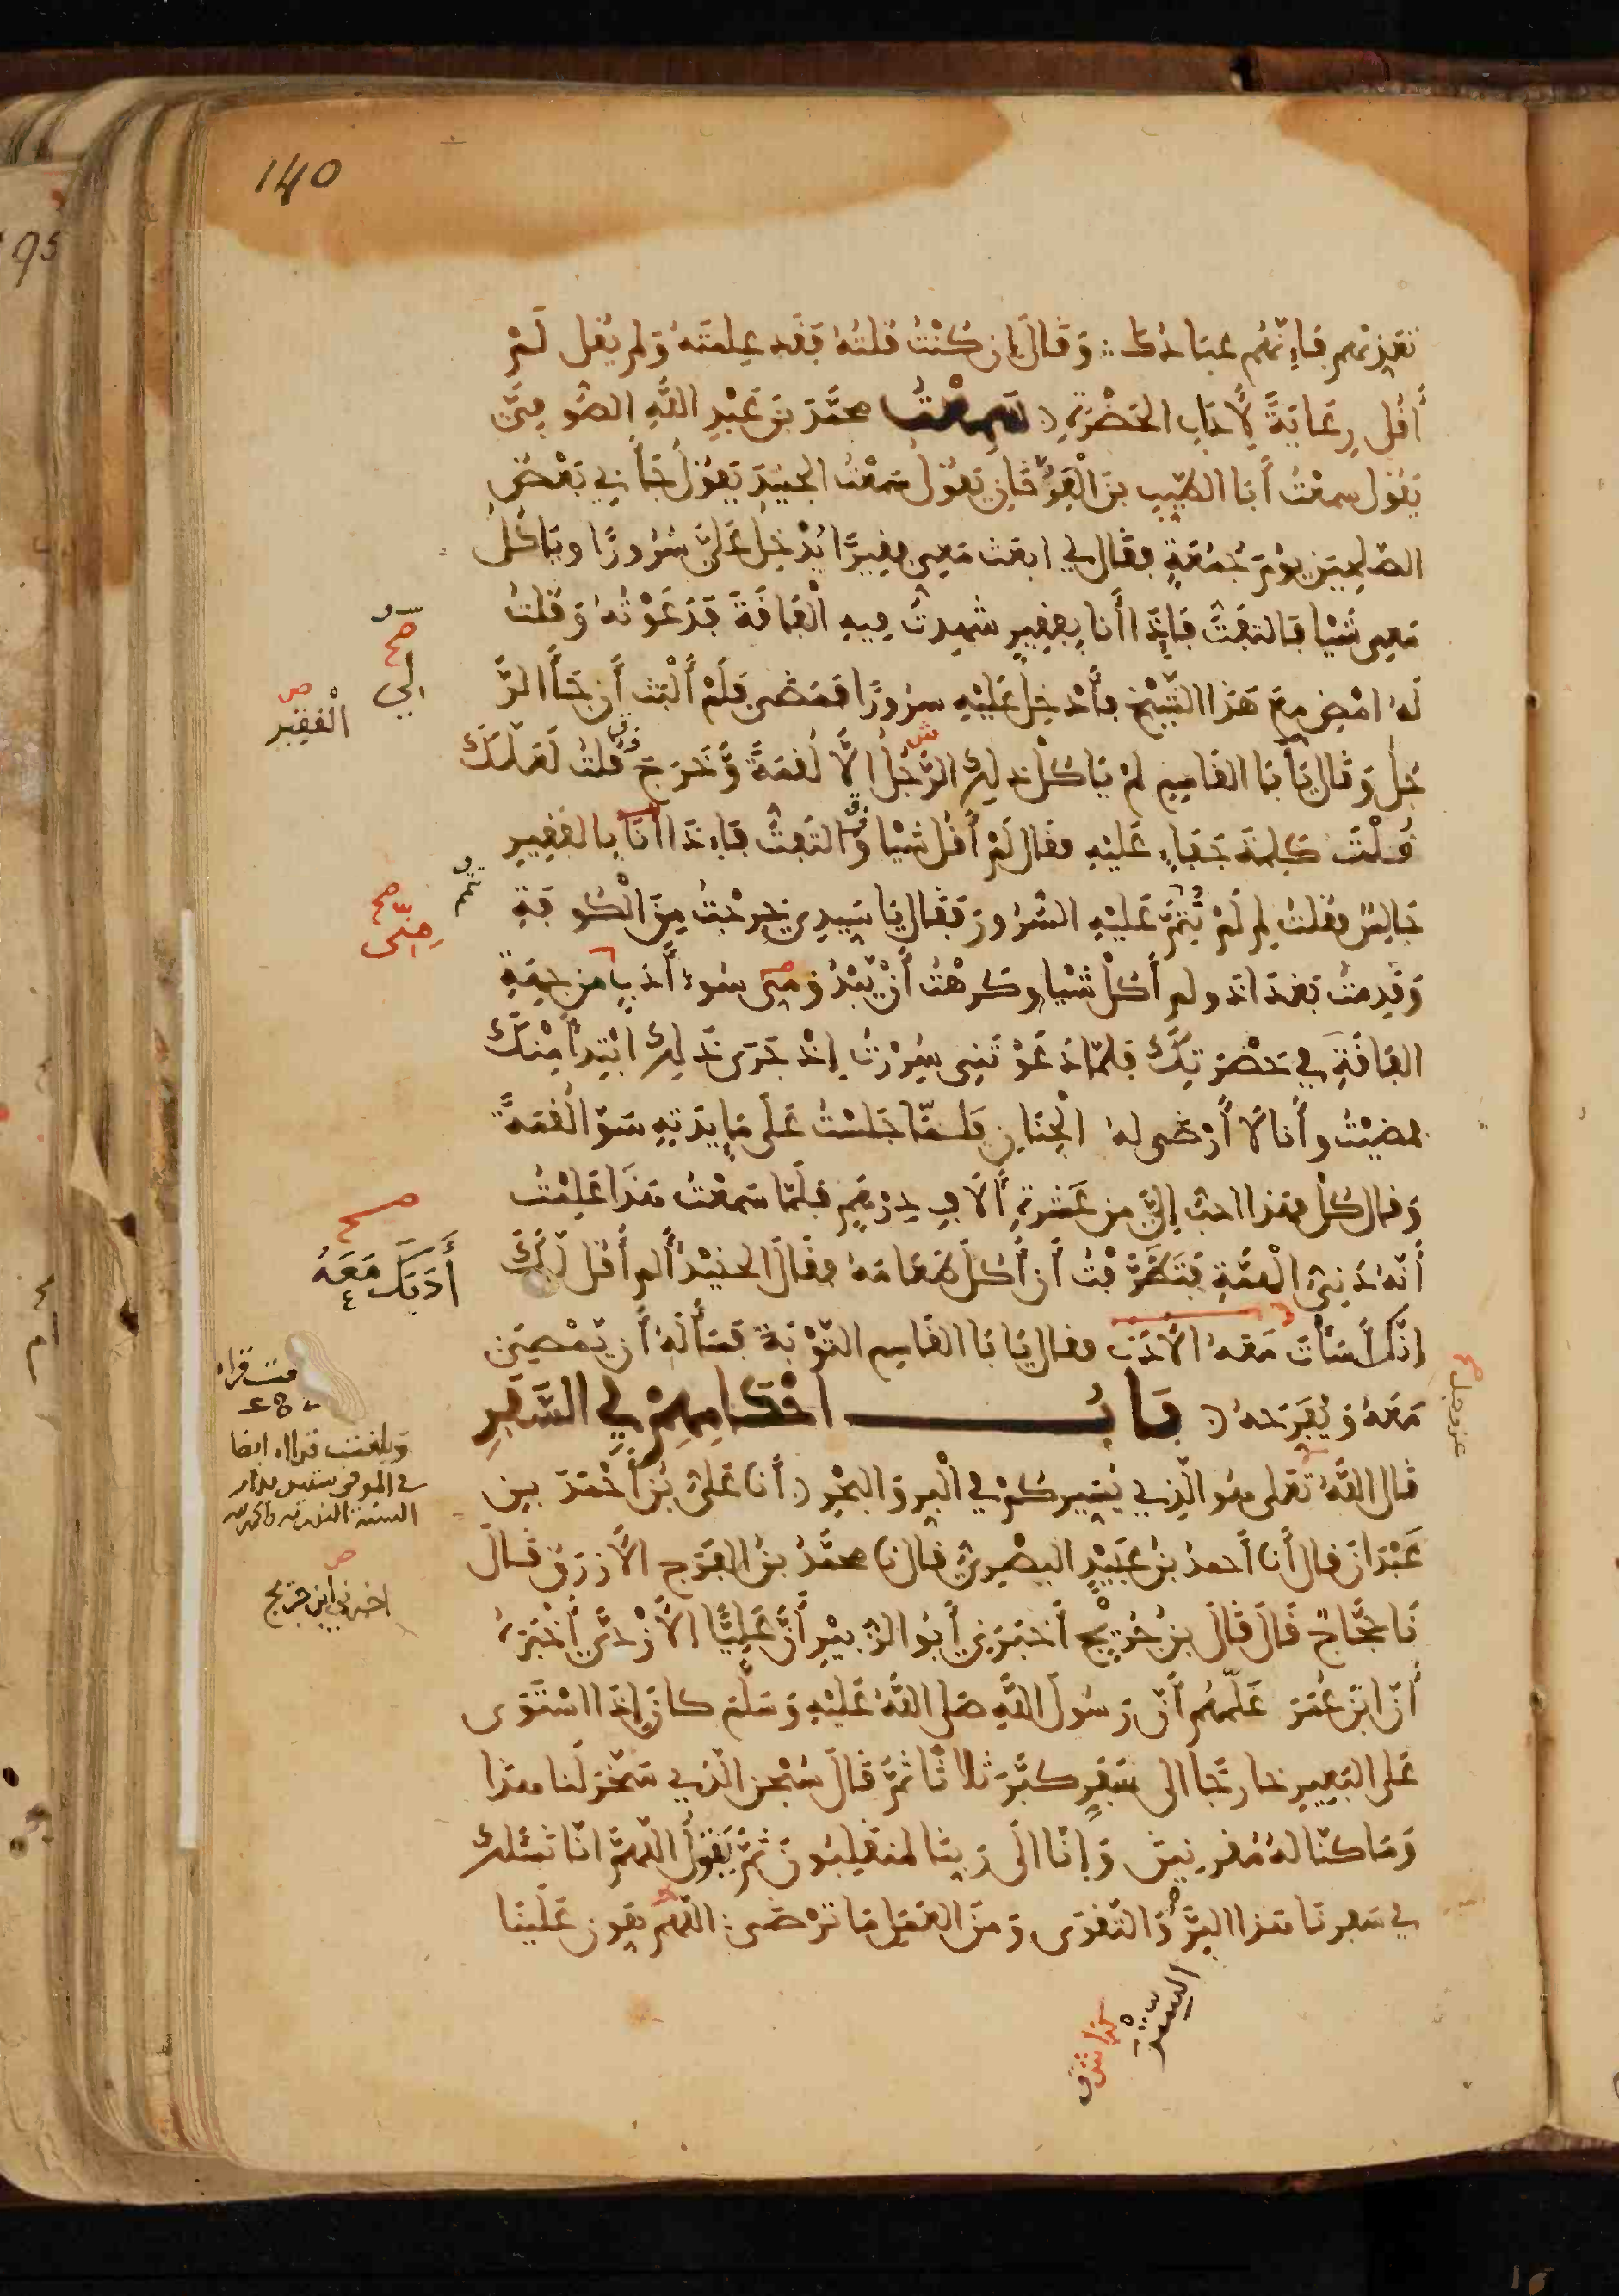 140
تعذبهم فإنهم عبادك وقال إن كنت قلته فقد علمته ولم يقل لم
أقل رعاية لآداب الحضرة سمعت محمد بن عبد الله الصوفي
يقول سمعت أبا الطيب بن الفرخان يقول سمعت الجنيد يقول جاني بعض
الصلحين يوم جمعة فقال لي ابعث معي فقيرا يدخل علي سرورا وياكل
معي شيا فالتفت فإذا أنا بفقير شهدت فيه الفاقة فدعوته وقلت
له امض مع هذا الشيخ فأدخل عليه سرورا فمضى فلم ألبث أن جاء الر
جل وقال يأبا القاسم لم ياكل ذلك الرجل إلا لقمة وخرج فقلت لعلك
قلت كلمة جفاء عليه فقال لم أقل شيا والتفت فإذا أنا بالفقير
جالس فقلت لم لم تتم عليه السرور فقال يا سيدي خرجت من الكوفة
وقدمت بغداد ولم أكل شيا وكرهت أن يبدو مني سوء أدب من جهة
الفاقة في حضرتك فلما دعوتني سررت إذ جرى ذلك ابتداء منك
فمضيت وأنا لا أرضى له الجنان فلما جلست على مايدته سوا لقمة
وقال كل فهذا احب إلي من عشرة ألاف درهم فلما سمعت هذا علمت
أنه دني الهمة فتطرفت أن أكل طعامه فقال الجنيد ألم أقل لك
إنك أسأت معه الأدب فقال يا با القاسم التوبة فسأله أن يمضي
معه ويفرحه باب أحكامهم في السفر
قال الله تعلى هو الذي يسيركم في البر والبحر أنا علي بن أحمد بن
عبدان قال أنا أحمد بن عبيد البصري قال نا محمد بن الفرج الأزرق قال
نا حجاج قال قال بن جريج أخبرني أبو الزبير أن عليا الأزدي أخبره
أن ابن عمر علمهم أن رسول الله صلى الله عليه وسلم كان إذا استوى
على البعير خارجا الى سفر كبر ثلاثا ثم قال سبحن الذي سخر لنا هذا
وما كنا له مقرنين وإنا الى ربنا لمنقلبون ثم يقول اللهم انا نسئلك
في سفرنا هذا البر والتقوى ومن العمل ما ترضى اللهم هون علينا
صح
إلي
الفقير
صح
مني
صح
أدبك معه
عز وجل
اخبرني ابن جريج
السير